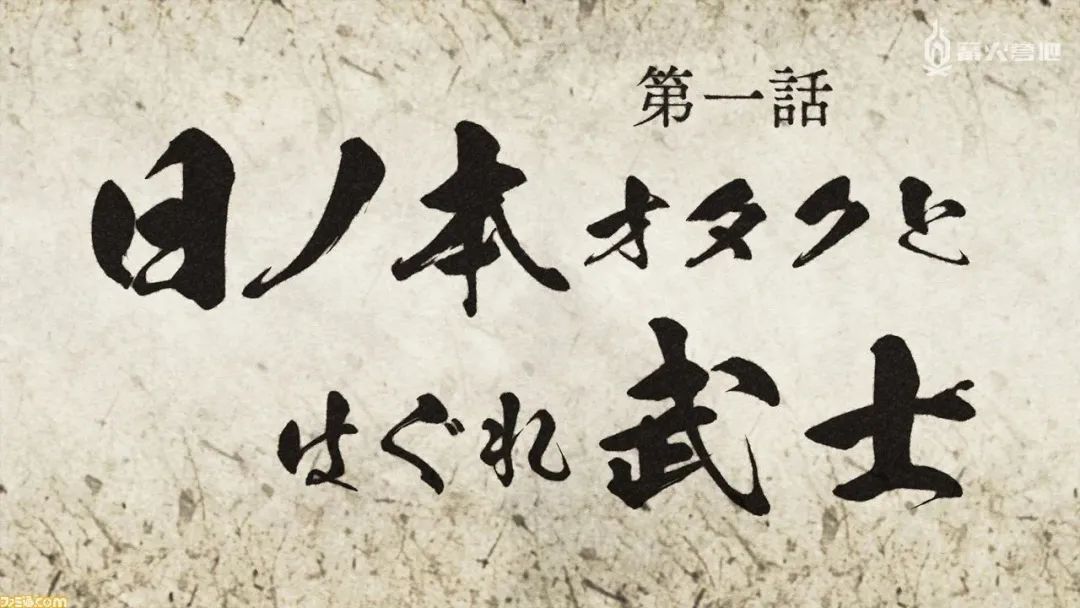 篝火营地
第一話
日ノ本オタクと
はぐれ武士
ファミ通.com